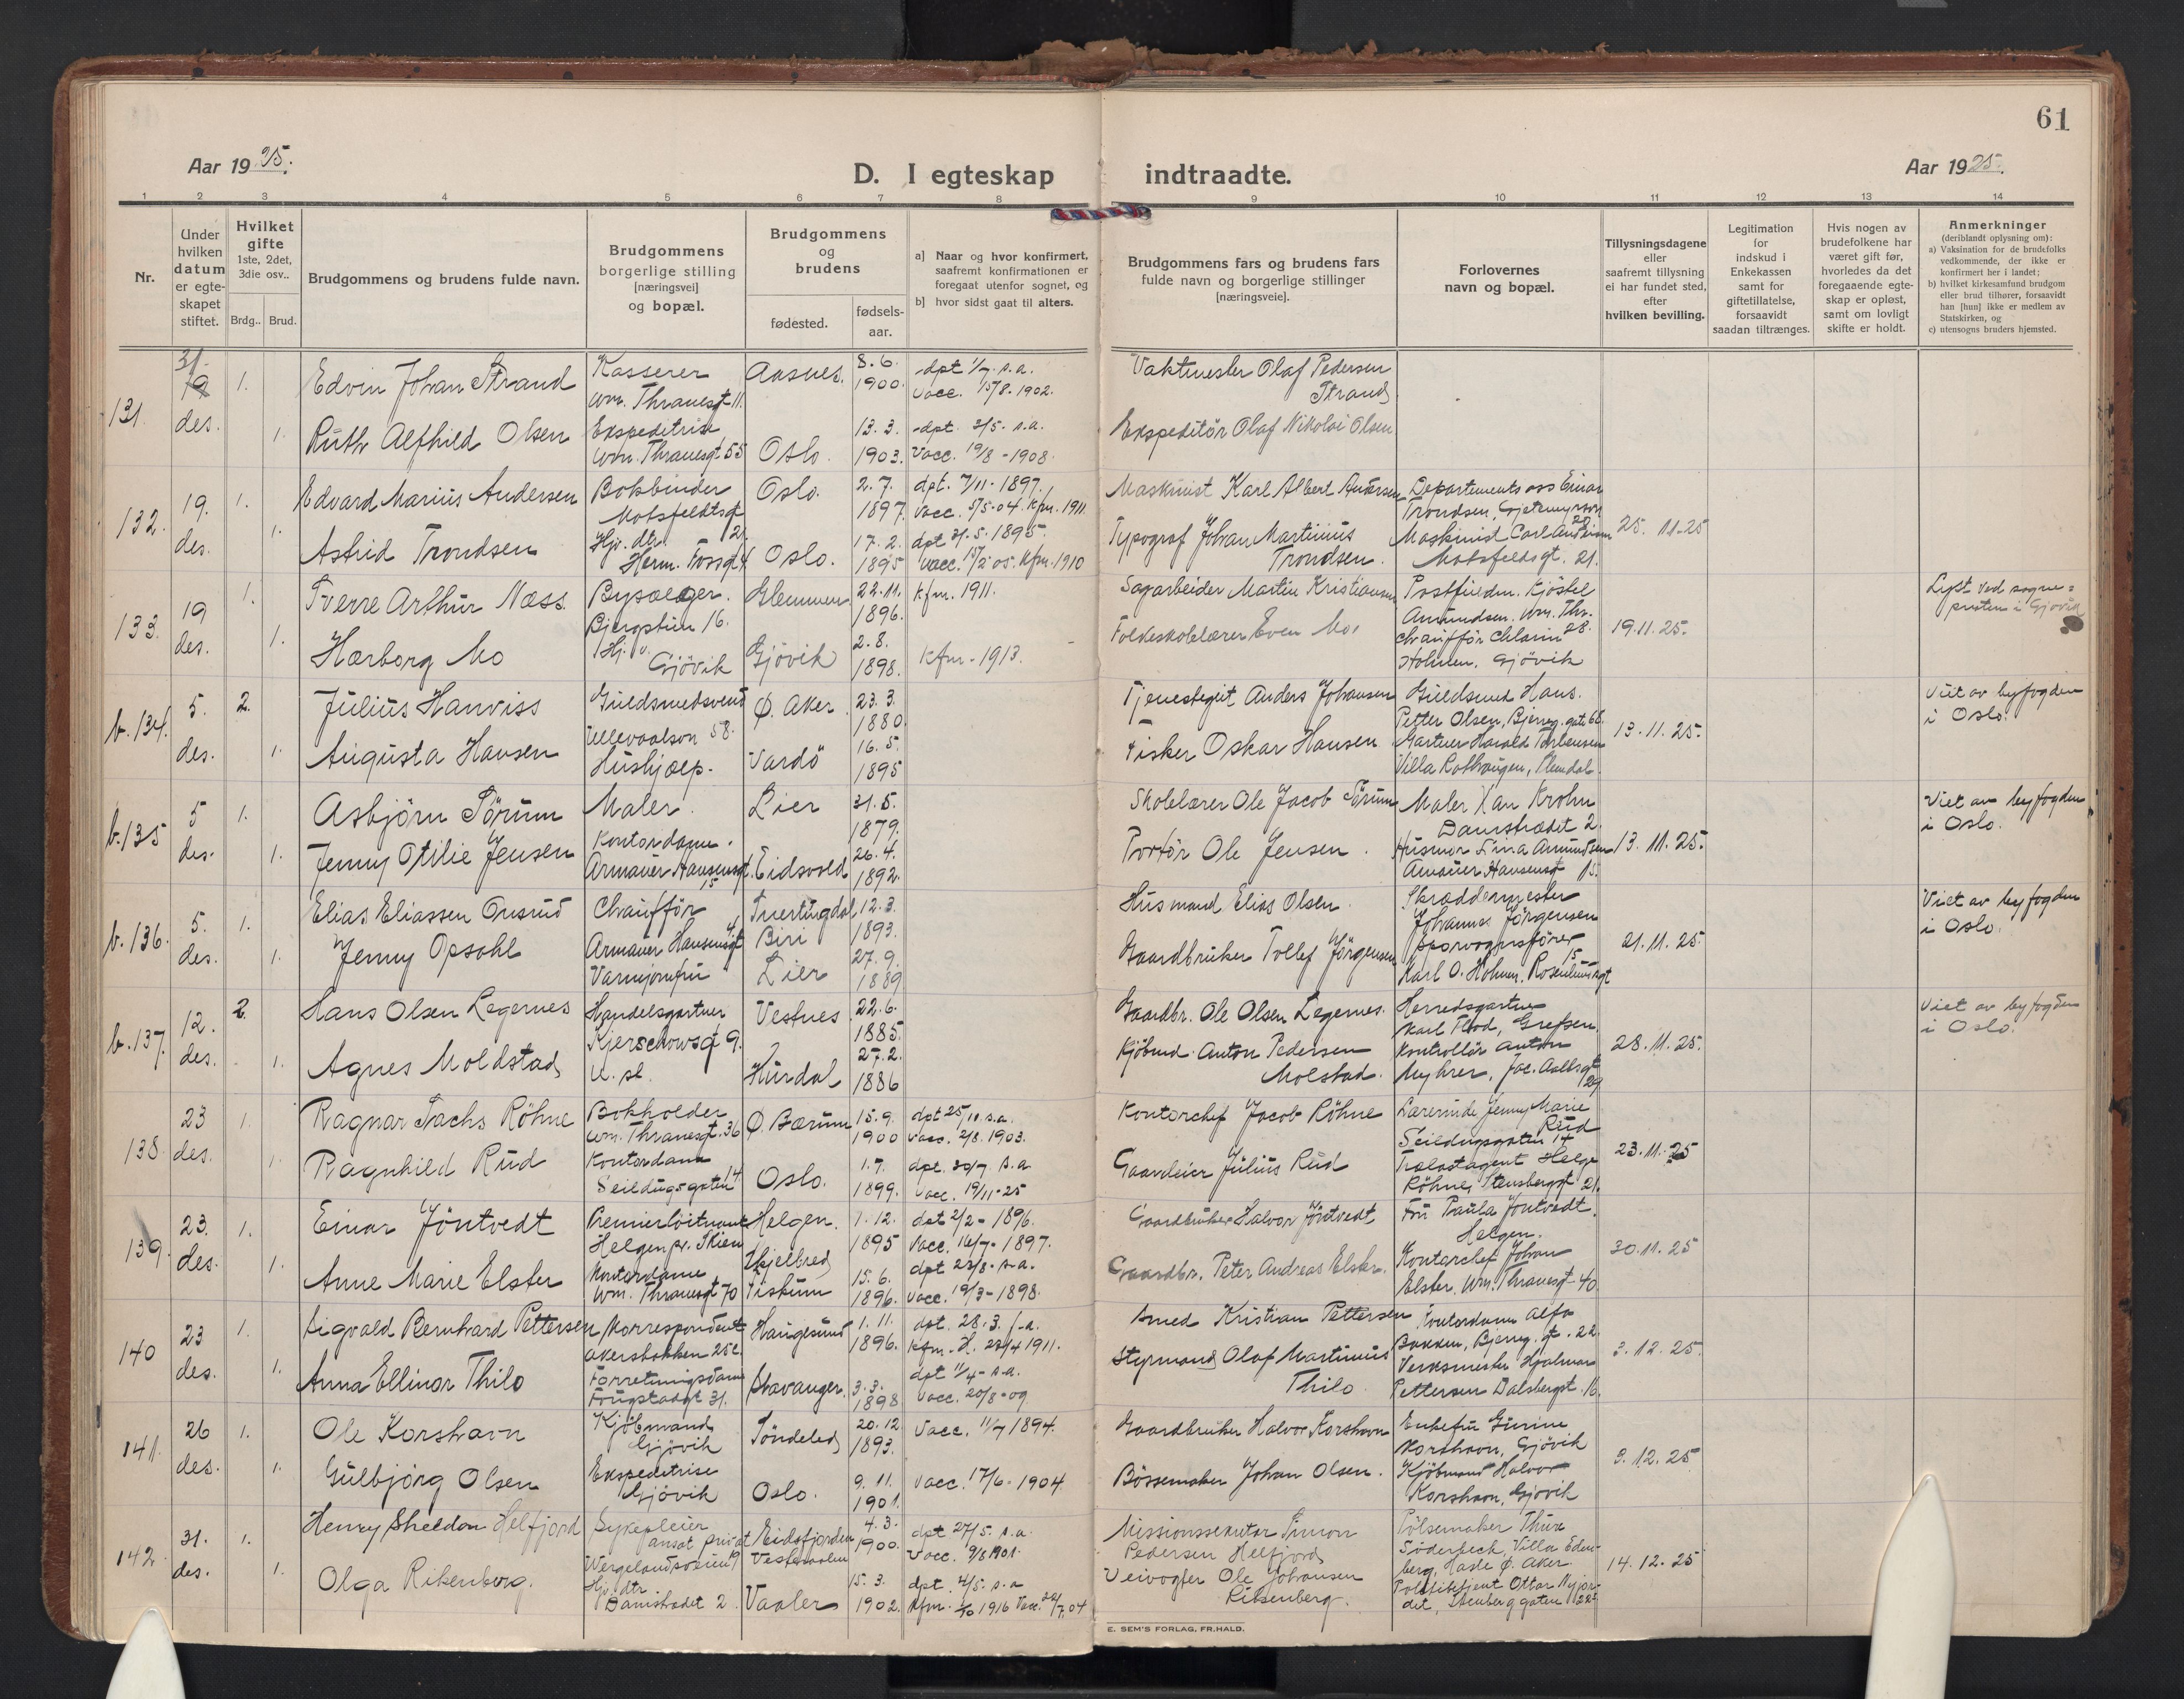 61
Aar 1925.
D. I egteskap indtraadte.
Aar 1925.
1 2 3 4 5 6 7 8 9 10 11 12 13 14
Nr.
Under hvilken datum er egteskapet stiftet.
Hvilket gifte 1ste, 2det, 3die osv..
Brdg.. Brud.
Brudgommens og brudens fulde navn.
Brudgommens borgerlige stilling [næringsvei] og bopæl.
Brudgommens og brudens
fødested.
fødselsaar.
a) Naar og hvor konfirmert, saafremt konfirmationen er foregaat utenfor sognet, og
b) hvor sidst gaat til alters.
Brudgommens fars og brudens fars fulde navn og borgerlige stillinger [næringsveie].
Forlovernes navn og bopæl.
Tillysningsdagene eller saafremt tillysning ei har fundet sted, efter hvilken bevilling.
Legitimation for indskud i Enkekassen samt for giftetillatelse, forsaavidt saadan tiltrænges.
Hvis nogen av brudefolkene har været gift før, hvorledes da det foregaaende egteskap er opløst, samt om lovligt skifte er holdt.
Anmerkninger (deriblandt oplysning om):
a) Vaksination for de brudefolks vedkommende, der ikke er konfirmert her i landet;
b) hvilket kirkesamfund brudgom eller brud tilhører, forsaavidt han [hun] ikke er medlem av Statskirken, og
c) utensogns bruders hjemsted.
131. 31 des. 1. Edvin Johan Strand Kasserer Wm. Thranesgt 11. Aasnes. 8.6. 1900. dpt 1/7. s.a. Vacc. 15/8. 1902. Vaktmester Olaf Pedersen Strand
1. Ruth Alfhild Olsen Ekspeditrise Wm. Thranesgt 55 Oslo. 13.3. 1903. dpt. 3/5. s.a. Vacc. 19/8-1908. Ekspeditör Olaf Nikolai Olsen
132. 19. des. 1. Edvard Marius Andersen Bokbinder Motzfeldtsgt 21. Oslo. 2.7. 1897. dpt. 7/11-1897, vacc. 5/5-04. Kfm. 1911 Maskinist Karl Albert Andersen Departementsass Einar Trondsen, 25. 11-25
1. Astrid Trondsen Hj. dtr. Herm. Fossgt 4 Oslo. 17.2. 1895 dpt 31.5. 1895. Vacc. 15/2 05. Kfm. 1910 Typograf Johan Martinius Trondsen. Maskinist Carl Andersen Motsfeldsgt. 21.
133. 19 des. 1. Sverre Arthur Næss Bjergstien 16. Glemmen 22.11. 1896. Kfm. 1911. Sagarbeider Martin Kristiansen Amundsen. Wm. Thr. 28. 19.11.25. Lyst ved sognepresten i Gjøvik
1. Hærborg Mo Hj. Gjövik Gjövik 2.8. 1898. Kfm-1913. Folkeskolelærer Even Mo. Chauffför Holmen. Gjövik
b. 134. 5. des. 2. Julius Hanviss Guldsmedsvend Ullevaalsvn 58. Ø. Aker 23.3. 1880. Tjenestegut Anders Johansen Guldsmed Hans. Petter Olsen, Bjerreg. gate 68. 13.11.25. Viet av byfogden i Oslo.
1. Augusta Hansen Hushjælp. Vardö 16.5. 1895 Fisker Oskar Hansen Gartner Harald Villa
b. 135 5 des. 1. Asbjörn Sörum Maler. Lier 31.5. 1879. Skolelærer Ole Jacob Sörum Maler Krohn Damstrædet 2. 13.11.25. Viet av byfogden i Oslo.
1. Jenny Otilie Jensen Kontordame. Armauer Hansensgt. 15 Eidsvold 26.4. 1892. Portör Ole Jensen. Amundsen Armauer Hansensgt 15.
b. 136. 5. des. 1. Elias Eliassen Onsrud Chaufför Armauer Hansensgt 4 Snertingdal Biri 12.3. 1893. Husmand Elias Olsen. Skræddermester Johannes Jörgensen 21.11.25. Viet av byfogden i Oslo.
1. Jenny Opsahl Varmjomfru Lier 27.9. 1889 Gaardbruker Tollef Jörgensen Sporvognsförer Karl O. Holmen. Rosenlundsgt 15
b. 137. 12. des. 2. Hans Olsen Legernes Handelsgartner Kjerschowsgt 9. Vestnes 22.6. 1885. Gaardbr. Ole Olsen Legernes. Herredsgartner Karl Flod, Grefsen. 28.11.25. Viet av byfogden i Oslo.
1. Agnes Moldstad U. st. Hurdal 27.2. 1886 Kjöbmd Anton Pedersen Molstad. Kontrollör Anton Myhrer, Jac. Aallsgt 29
138. 23 des. 1. Ragnar Sachs Röhne Bokholder Wm. Thranesgt. 36 Ø. Bærum 15.9. 1900 dpt 25/11 s.a. Vacc. 2/8. 1903. Kontorchef Jacob Röhne Lærerinde Jenny Marie Rud Seildugsgaten 14 23.11.25
1. Ragnhild Rud Kontordame Seildugsgaten 14 Oslo. 1.7. 1899. dpt. 30/7 s.a Vacc. 19/11-25 Gaardeier Julius Rud Trælastagent Helge Röhne, Stensbergt 21.
139. 23. des. 1. Einar Jöntvedt Premierlöitnant Helgen pr. Skien Helgen. 1.12. 1895 dpt 2/2-1896. Vacc. 16/7-1897. Gaardbruker Halvor Jöntvedt Fru Paula Jöntvedt. Helgen. 30.11.25
1. Anne Marie Elster Kontordame Wm. Thranesgt 70 Fiskum 15.6. 1896. dpt 23/8-s.a. Vacc. 19/3-1898. Gaardbr. Peter Andreas Elster. Kontorchef Johan Elster. Wm. Thranesgt-40.
140 23 des. 1. Sigvald Bernhard Pettersen Korrespondent Akersbakken 25c. Haugesund 1.11. 1896. dpt. 28.3. Kfm. H. 23/4 1911. Smed Kristian Pettersen Kontordame Alfa Bakken, Bjerreg. gt. 22. 3.12.25.
1. Anna Ellinor Thilo Forretningsdame Fougstadgt 31. Stavanger. 3.3. 1898 dpt 11/4-s.a. Vacc. 20/8-09 Styrmand Olaf Martinius Thilo. Verksmester Hjalmar Pettersen Dalsbergst. 16.
141. 26 des. 1. Ole Korshavn Kjöbmand Gjövik Söndeled 20.12 1893. Vacc. 11/7 1894. Gaardbruker Halvor Korshavn Enkefru Gurine Korshavn, Gjövik 3.12.25
1. Gulbjörg Olsen Ekspeditrise Gjövik Oslo. 9.11. 1901. Vacc. 17/6-1904 Bössemaker Johan Olsen. Kjöbmand Halvor Korshavn, Gjövik
142. 31. des. 1. Henry Sheldon Helfjord Sykepleier ansat privat Wergelandsveien 19 Eidsfjorden Vesteraalen 4.3. 1900. dpt 27/5. s.a. Vacc. 9/8 1901. Missionssekretær Simon Pedersen Helfjord Pölsemaker Thure Söderbeck, Villa Edenberg, Hasle Ø. Aker. 14.12.25
1. Olga Riksenberg. Hj. dtr. Damstrædet 2. Vaaler 15.3. 1902. dpt. 4/5. s.a Kfm. 1916 Vacc. 04 Veivogter Ole Johansen Riksenberg. Politibetjent Ottar Stensberggaten 22
E. SEM'S FORLAG, FR.HALD.